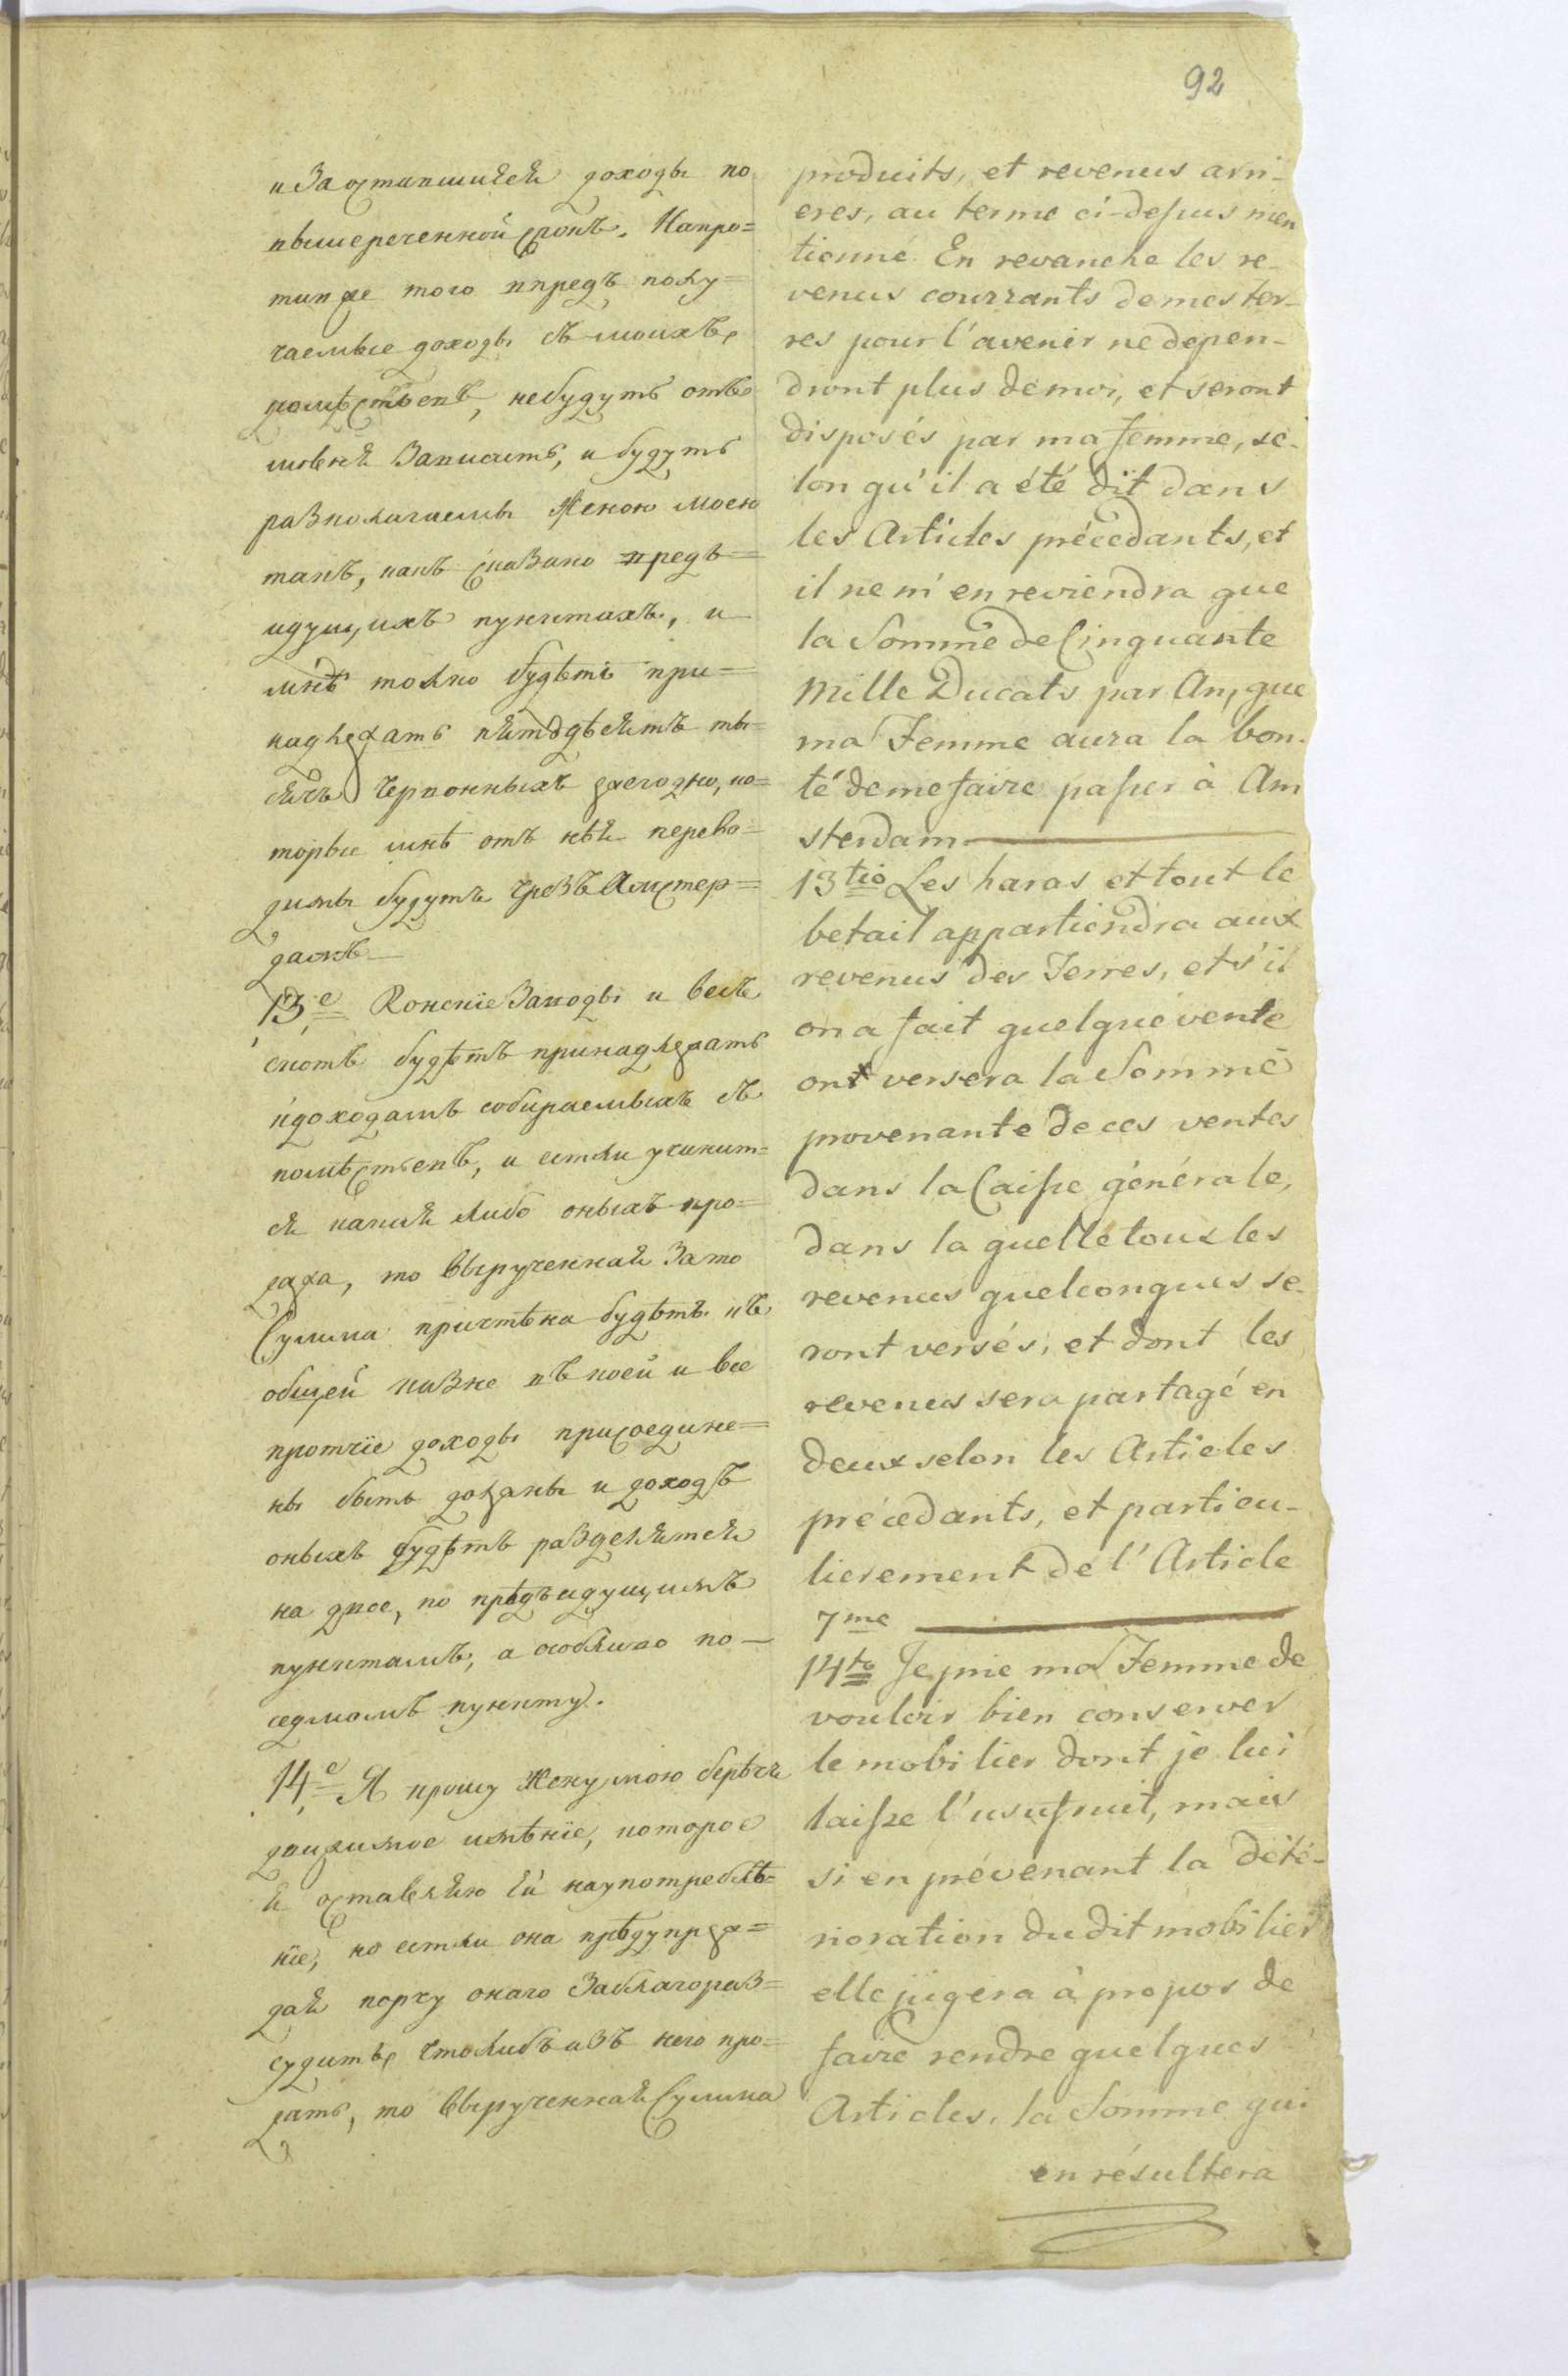 92
и Заоставшияся доходы по
вышереченной срокъ. Напро=
тив же того впредъ полу=
чаемые доходы съ моихъ
помѣстьевъ, небудутъ отъ
меня Зависить, и будутъ
разполагаемы Женою моею
такъ, какъ сказано предъ=
идущихъ пунктахъ, и
мнѣ толко будѣтъ при=
надлежать пятдѣсятъ ты=
сячь Червонныхъ ежегодно, ко=
торые мнѣ отъ нѣя перево=
димы будутъ чрезъ Амстер=
дамъ
13,е Конскіе Заводы и весь
скотъ будѣтъ принадлежать
кдоходамъ собираемыхъ съ
помѣстьевъ, и естли учинит=
ся какая либо оныхъ про=
дажа, то Вырученная Зато
Сумма причтѣна будѣтъ къ
общей казне въ коей и все
протчіе доходы присоедине=
ны быть должны и доходъ
оныхъ будѣтъ разделятся
на двое, по прѣдъидущимъ
пунктамъ, а особливо по
седмомъ пункту.
14,е Я прошу Жену мою берѣчь
движимое имѣніе, которое
я оставляю ей наупотреблѣ=
ніе, но естли она прѣдупреж=
дая порчу онаго Заблагораз=
судитъ чтолибъ изъ него про=
дать, то Вырученная Сумма
produits, et revenus arri-
eres, au terme ci-dessus men
tionné. En revanche les re-
venus courrants de mes ter-
res pour l'avenir ne depen-
dront plus de moi, et seront
disposés par ma femme, se-
lon qu'il a été dit dans
les Articles précédants, et
il ne m'en reviendra que
la Somme de Cinquante
Mille Ducats par An, que
ma Femme aura la bon-
té de me faire passer à Am
sterdam.
13tio Les haras et tout le
betail appartiendra aux
revenus des Terres, et s'il
on a fait quelque vente
on versera la Somme
provenante de ces ventes
dans la Caisse générale,
dans la quelle tous les
revenus quelconques se-
ront versés, et dont les
revenus sera partagé en
deux selon les Articles
précedants, et particu-
lierement de l'Article
7me
14to Je prie ma Femme de
vouloir bien conserver
le mobilier dont je lui
laisse l'usufruit, mais
si en prévenant la dété-
rioration du dit mobilier
elle jugera à propos de
faire rendre quelques
Articles, la Somme qui
en résultera